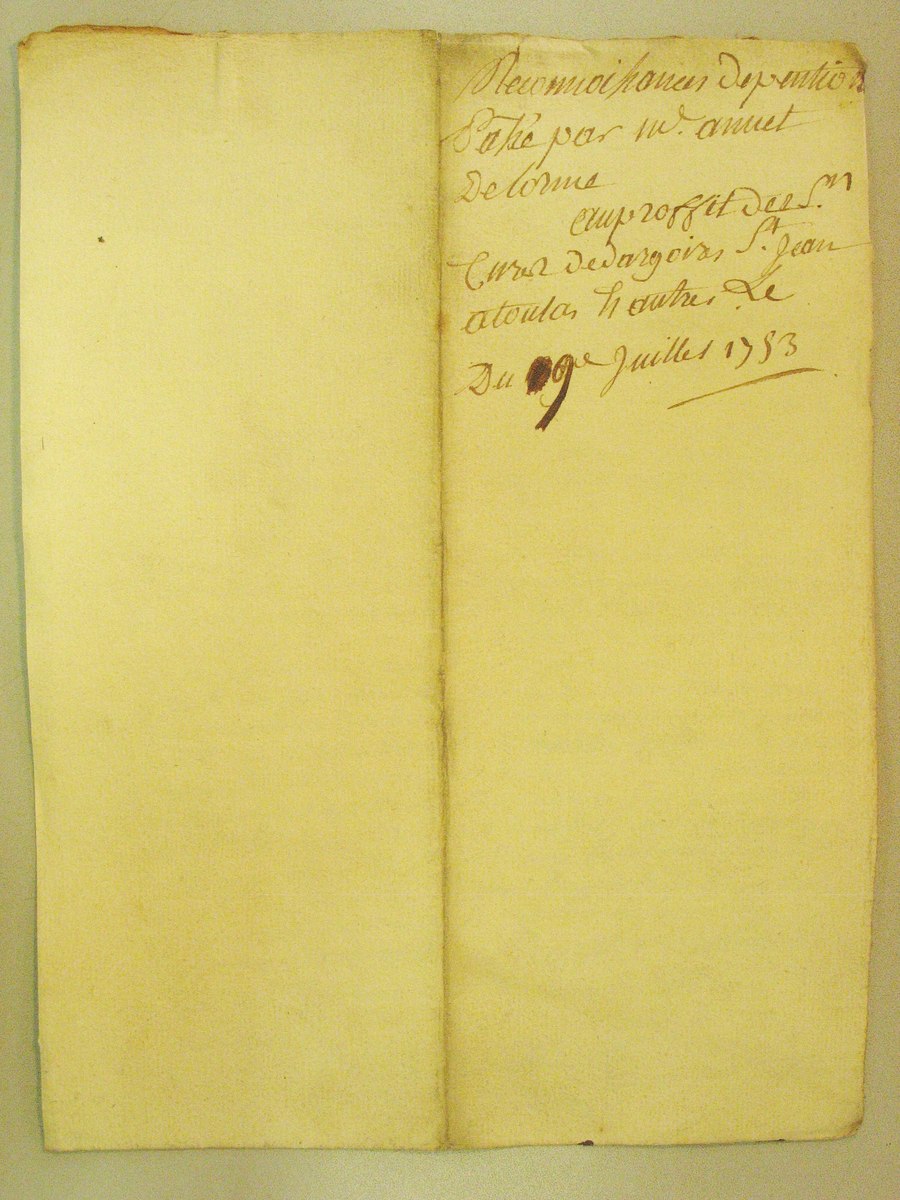 Reconnoissances de pention
Passé par m.r annet
Delorme
au proffit des S.rs
Curez de dargoire S.t Jean
a toulas & autres Le
Du 9e Juillet 1753